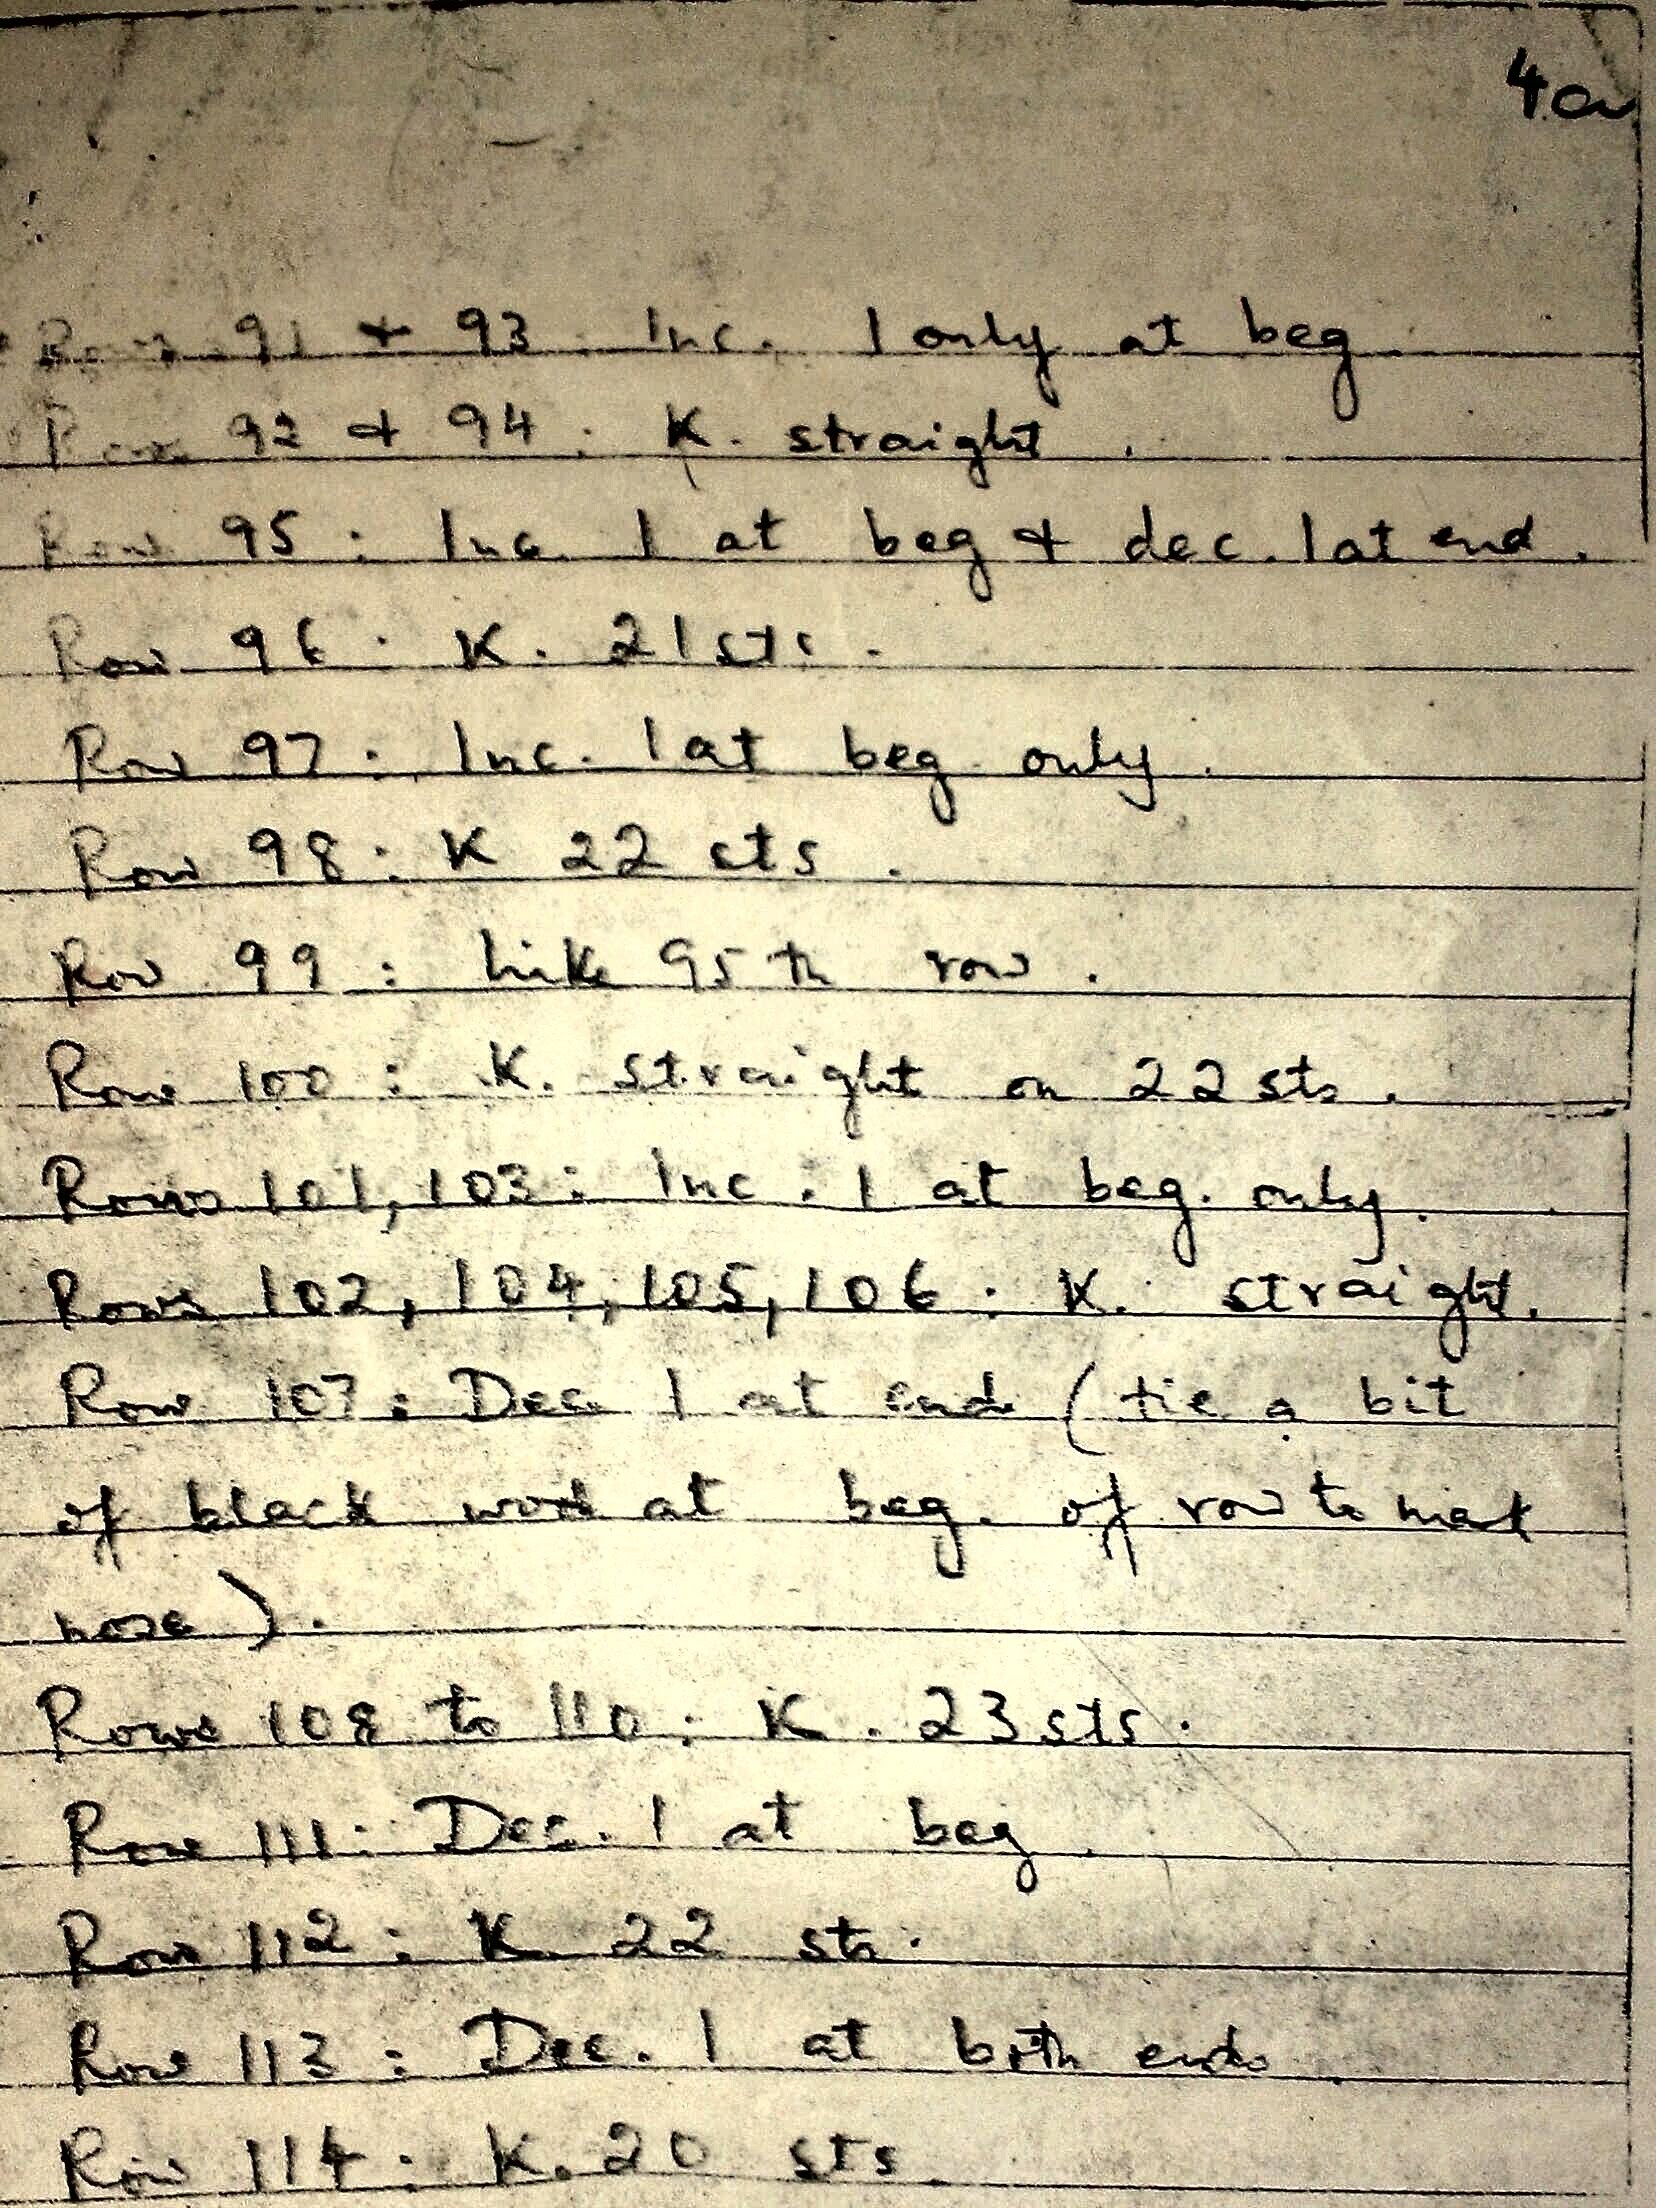 4a
Rows 91 & 93. Inc. 1 only at beg.
Rows 92 & 94: K. straight.
Row 95: Inc. 1 at beg & dec. 1 at end.
Row 96: K. 21 sts.
Row 97: Inc. 1 at beg. only.
Row 98: K 22 sts.
Row 99: Like 95th row.
Row 100: K. straight on 22 sts.
Rows 101, 103: Inc. 1 at beg. only.
Rows 102, 104, 105, 106: K. straight.
Row 107: Dec. 1 at end (tie a bit
of black wool at beg. of row to mark
nose).
Rows 108 to 110: K. 23 sts.
Row 111: Dec. 1 at beg.
Row 112: K. 22 sts.
Row 113: Dec. 1 at both ends.
Row 114: K. 20 sts.